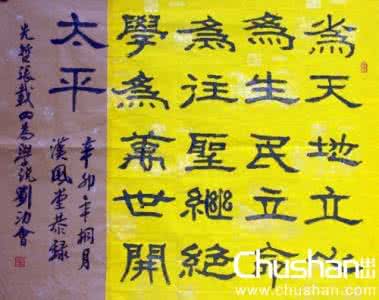 為天地立心
為生民立命
為往聖繼絕
學為萬世開
太平
辛卯年桐月
漢風堂恭錄
先哲張載四為學說劉會
Chushan
.com